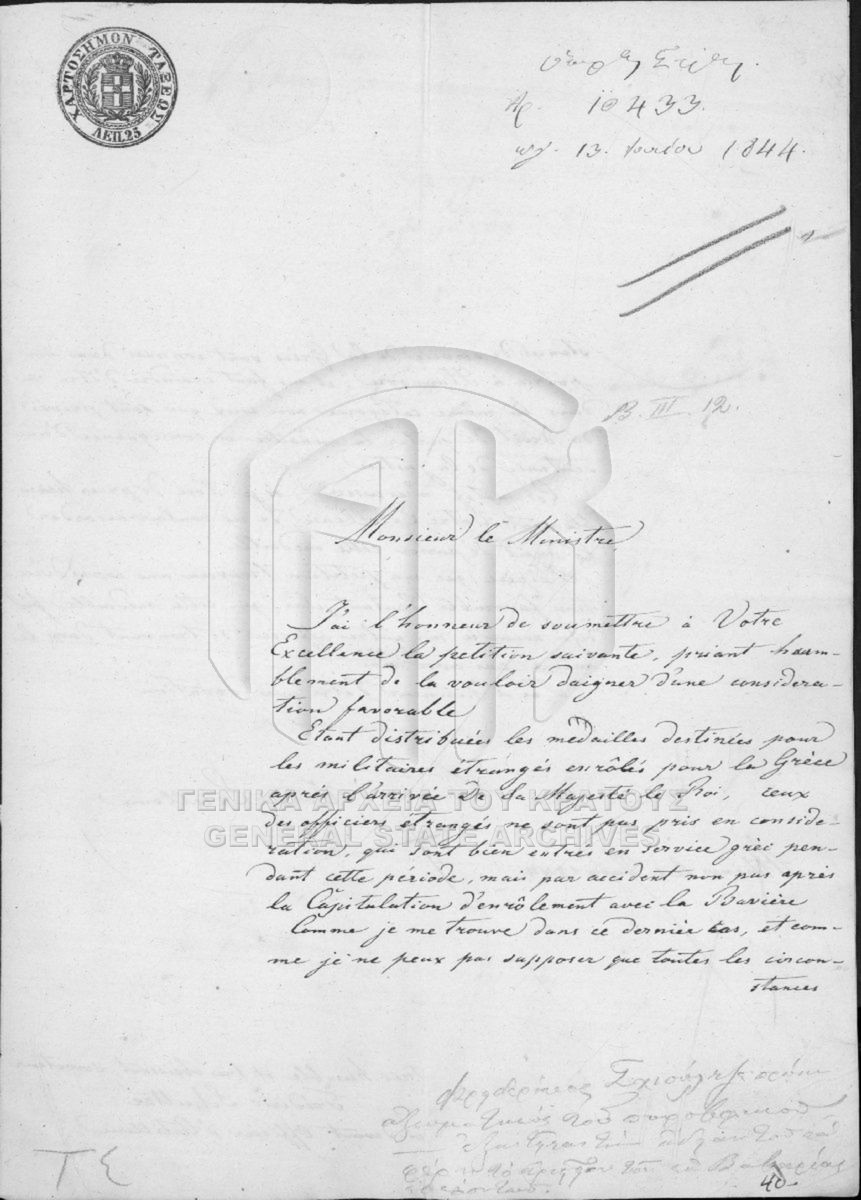 ΧΑΡΤΟΣΗΜΟΝ ΤΑΞΕΩΣ
ΛΕΠ. 25
Αρ. 10433.
13. Ιουνίου 1844.
B. III. 12.
Monsieur le Ministre
J'ai l'honneur de soumettre à Votre
Excellence la petition suivante, priant houm-
blement de la vouloir daigner d'une considera-
tion favorable
Etant distribuées les médailles destinées pour
les militaires étrangés enrôlés pour la Grèce
après l'arrivée de Sa Majesté le Roi, ceux
des officiers étrangés ne sont pas pris en conside-
ration, que sont bien entrés en service grèc pen-
dant cette période, mais par accident non pas après
la Capitulation d'enrôlement avec la Bavière
Comme je me trouve dans ce dernier cas, et com-
me je ne peux pas supposer que toutes les circon-
stances
ΓΕΝΙΚΑ ΑΡΧΕΙΑ ΤΟΥ ΚΡΑΤΟΥΣ
GENERAL STATE ARCHIVES
αξιωματικός του πυροβολικού
Βαυαρίας
40